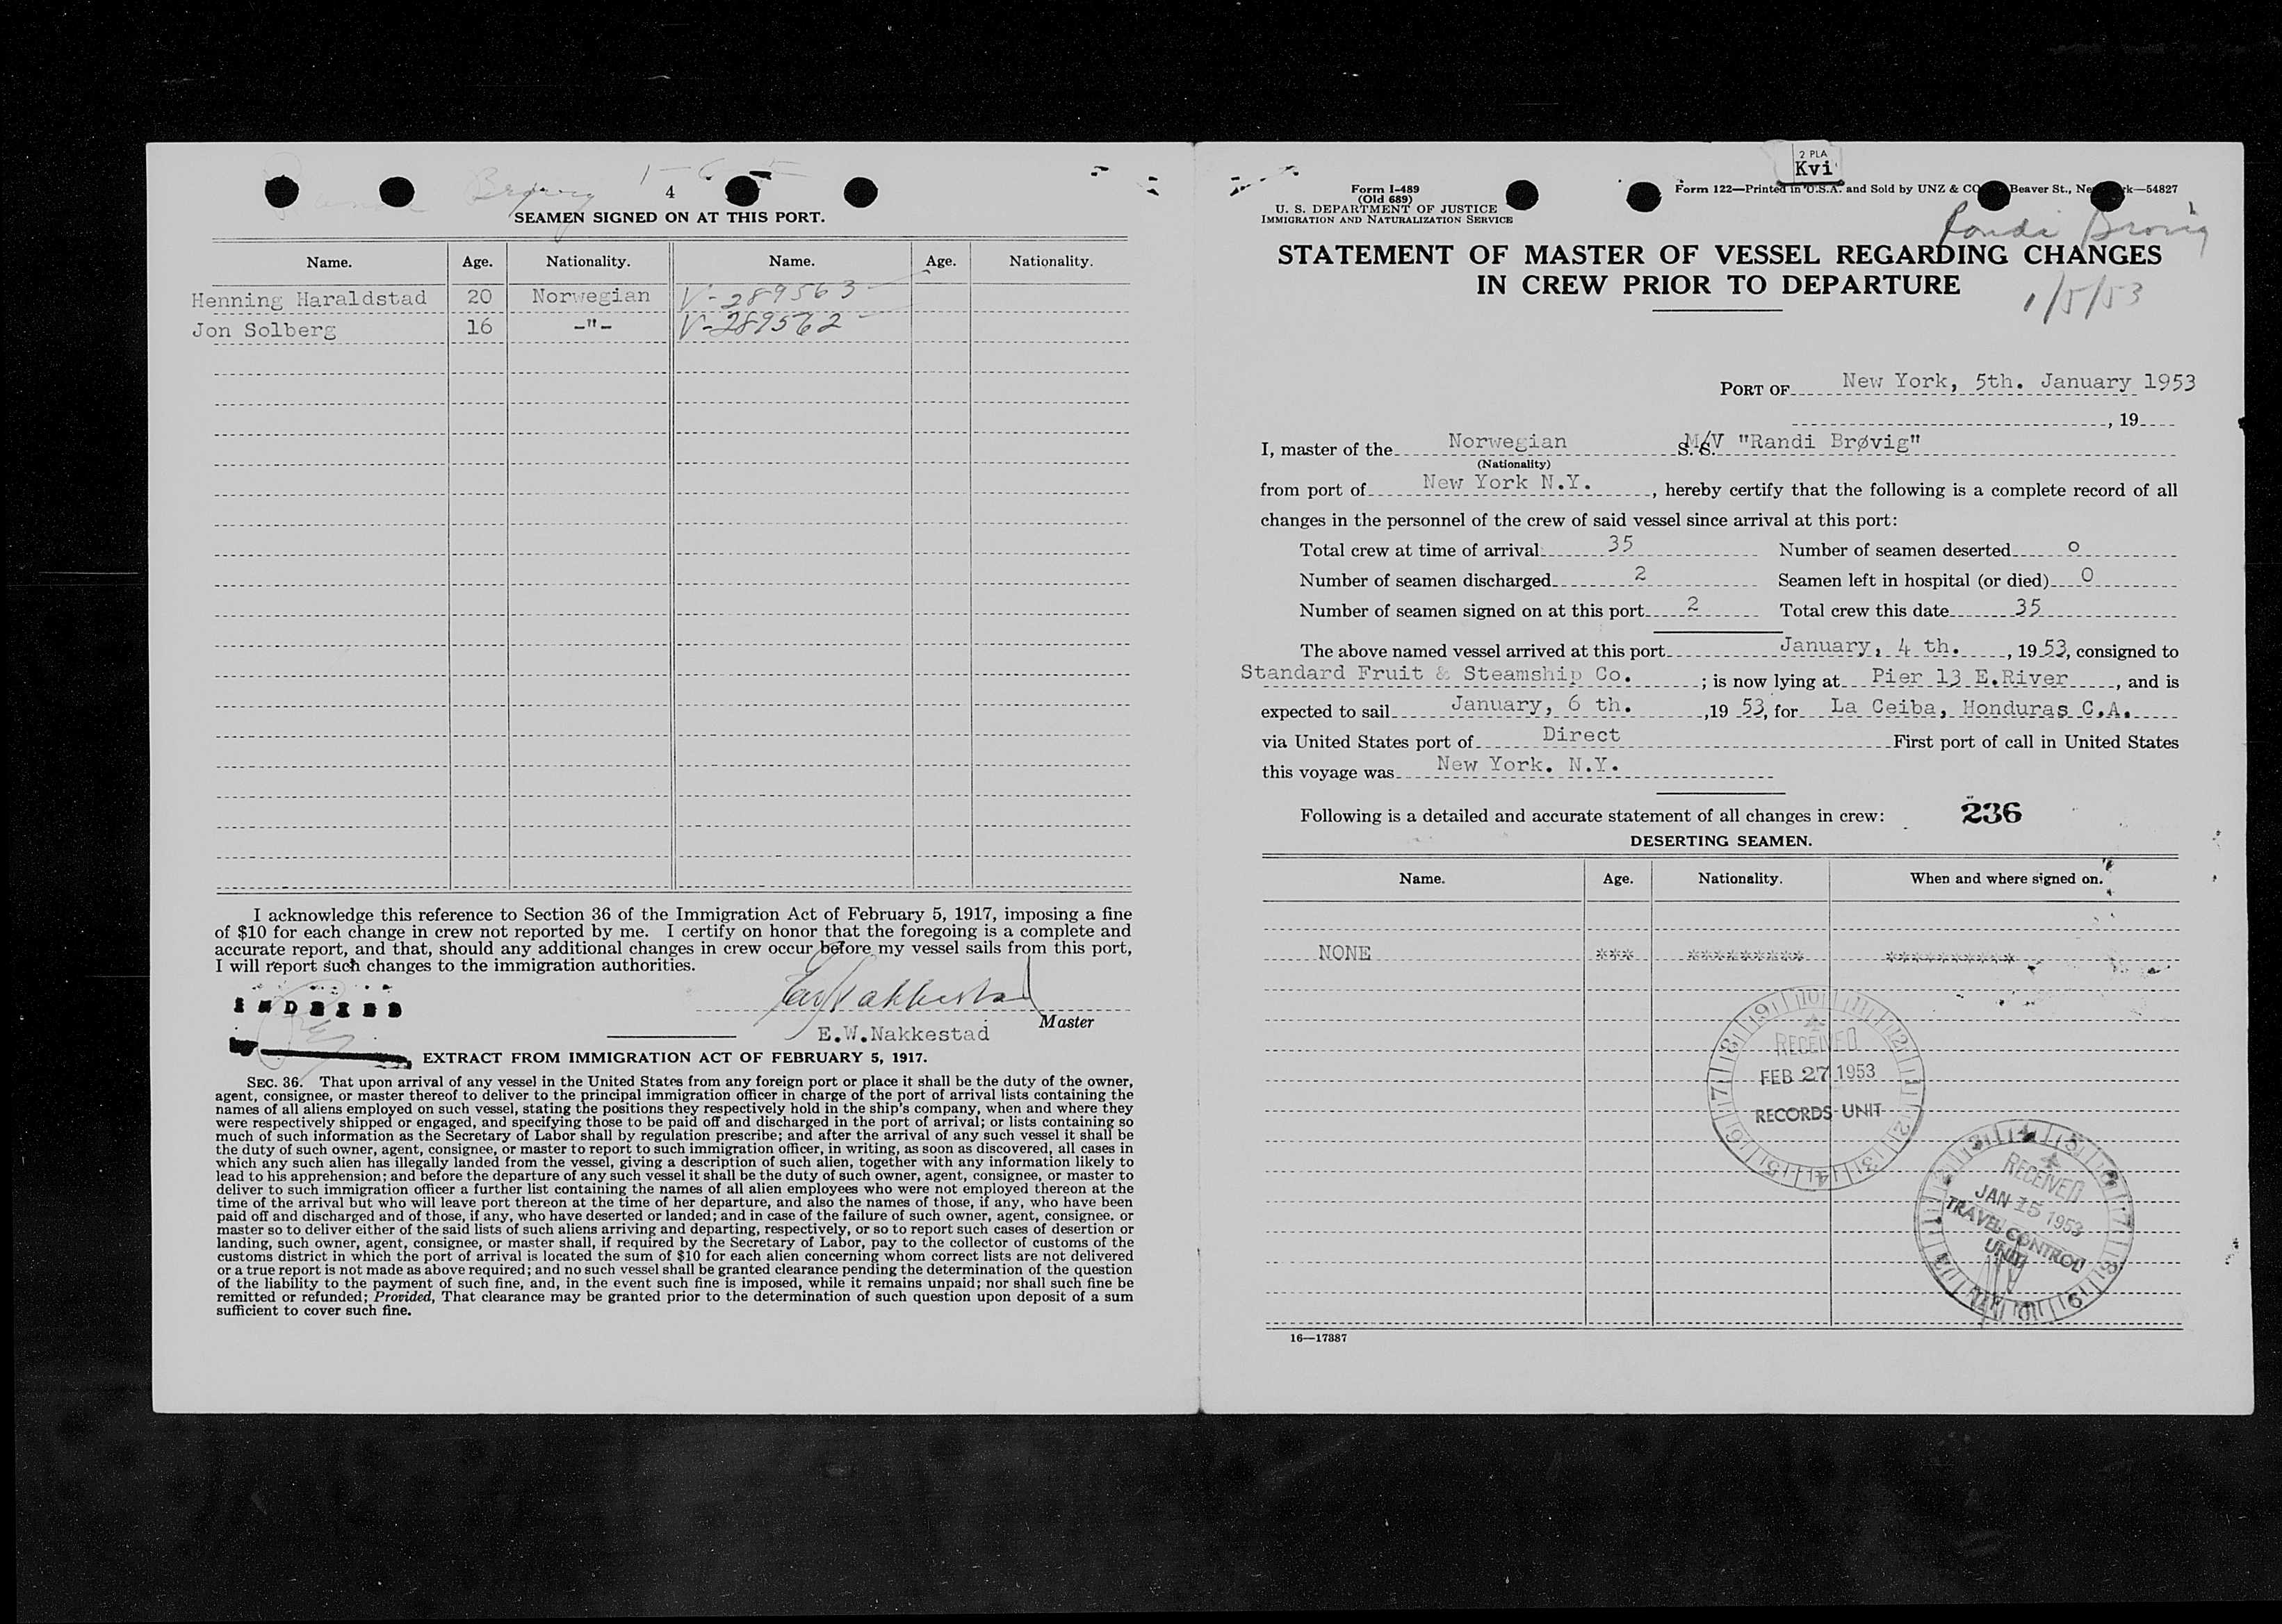 4
SEAMEN SIGNED ON AT THIS PORT.
Name. Age. Nationality. Name. Age. Nationality.
Henning Haraldstad 20 Norwegian V-289563
Jon Solberg 16 -"- V-289562
I acknowledge this reference to Section 36 of the Immigration Act of February 5, 1917, imposing a fine
of $10 for each change in crew not reported by me. I certify on honor that the foregoing is a complete and
accurate report, and that, should any additional changes in crew occur before my vessel sails from this port,
I will report such changes to the immigration authorities.
INDEXED
Master
E.W.Nakkestad
EXTRACT FROM IMMIGRATION ACT OF FEBRUARY 5, 1917.
SEC. 36. That upon arrival of any vessel in the United States from any foreign port or place it shall be the duty of the owner,
agent, consignee, or master thereof to deliver to the principal immigration officer in charge of the port of arrival lists containing the
names of all aliens employed on such vessel, stating the positions they respectively hold in the ship's company, when and where they
were respectively shipped or engaged, and specifying those to be paid off and discharged in the port of arrival; or lists containing so
much of such information as the Secretary of Labor shall by regulation prescribe; and after the arrival of any such vessel it shall be
the duty of such owner, agent, consignee, or master to report to such immigration officer, in writing, as soon as discovered, all cases in
which any such alien has illegally landed from the vessel, giving a description of such alien, together with any information likely to
lead to his apprehension; and before the departure of any such vessel it shall be the duty of such owner, agent, consignee, or master to
deliver to such immigration officer a further list containing the names of all alien employees who were not employed thereon at the
time of the arrival but who will leave port thereon at the time of her departure, and also the names of those, if any, who have been
paid off and discharged and of those, if any, who have deserted or landed; and in case of the failure of such owner, agent, consignee. or
master so to deliver either of the said lists of such aliens arriving and departing, respectively, or so to report such cases of desertion or
landing, such owner, agent, consignee, or master shall, if required by the Secretary of Labor, pay to the collector of customs of the
customs district in which the port of arrival is located the sum of $10 for each alien concerning whom correct lists are not delivered
or a true report is not made as above required; and no such vessel shall be granted clearance pending the determination of the question
of the liability to the payment of such fine, and, in the event such fine is imposed, while it remains unpaid; nor shall such fine be
remitted or refunded; Provided, That clearance may be granted prior to the determination of such question upon deposit of a sum
sufficient to cover such fine.
2 PLA
Kvi
Form I-489
(Old 689)
U. S. DEPARTMENT OF JUSTICE
IMMIGRATION AND NATURALIZATION SERVICE
Form 122—Printed in U.S.A. and Sold by UNZ & CO Beaver St., Ne k—54827
Randi Brovig
STATEMENT OF MASTER OF VESSEL REGARDING CHANGES
IN CREW PRIOR TO DEPARTURE
1/5/53
PORT OF New York, 5th. January 1953
, 19
I, master of the Norwegian S. S. M/V "Randi Brøvig"
(Nationality)
from port of New York N.Y. , hereby certify that the following is a complete record of all
changes in the personnel of the crew of said vessel since arrival at this port:
Total crew at time of arrival 35 Number of seamen deserted o
Number of seamen discharged 2 Seamen left in hospital (or died) 0
Number of seamen signed on at this port 2 Total crew this date 35
The above named vessel arrived at this port January, 4 th. , 19 53, consigned to
Standard Fruit & Steamship Co. ; is now lying at Pier 13 E.River , and is
expected to sail January, 6 th. ,19 53, for La Ceiba, Honduras C.A.
via United States port of Direct First port of call in United States
this voyage was New York. N.Y.
Following is a detailed and accurate statement of all changes in crew: 236
DESERTING SEAMEN.
Name. Age. Nationality. When and where signed on.
NONE *** ********* **********
RECEIVED
FEB 27 1953
RECORDS UNIT
RECEIVED
JAN 15 1953
TRAVEL CONTROL
UNIT
16—17387